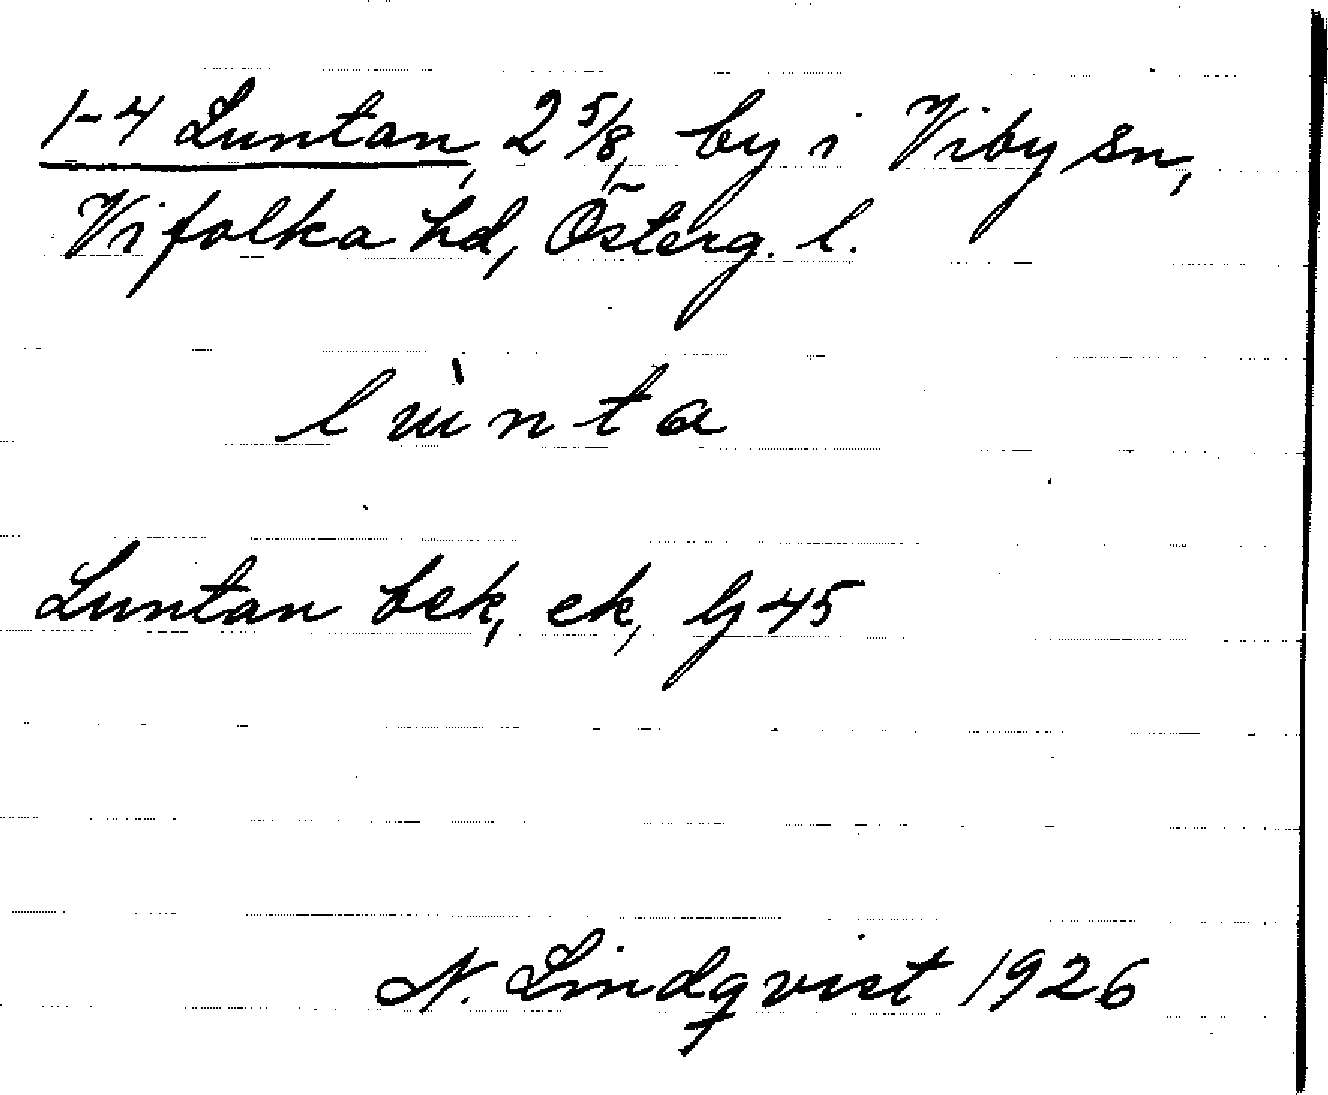 1-4 Luntan, 2 5/8, by i Viby sn,
Vifolka hd, Österg. l.
Luntan bek, ek, G 45
N. Lindqvist 1926